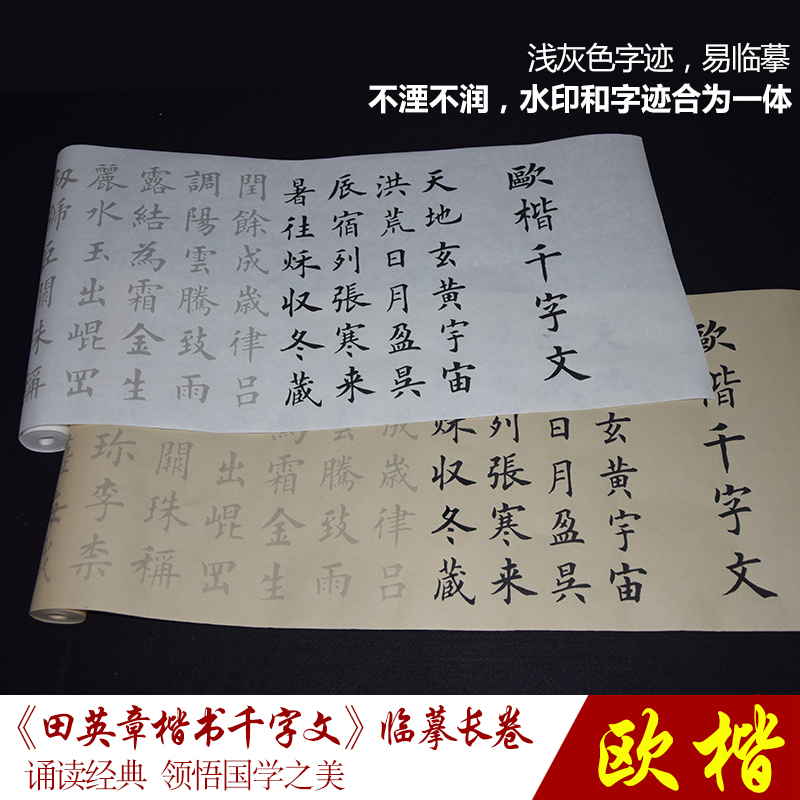 浅灰色字迹，易临摹
不湮不润，水印和字迹合为一体
歐楷千字文
天地玄黄宇宙
洪荒日月盈昃
辰宿列張寒来
暑往秋収冬蔵
閏餘成歳律吕
調陽雲騰致雨
露結為霜金生
麗水玉出崐岡
巨闕珠稱
歐楷千字文
玄黄宇宙
日月盈昃
列張寒来
秋収冬蔵
成歳律吕
雲騰致雨
為霜金生
出崐岡
闕珠稱
珎李柰
《田英章楷书千字文》临摹长卷
诵读经典 领悟国学之美
欧楷